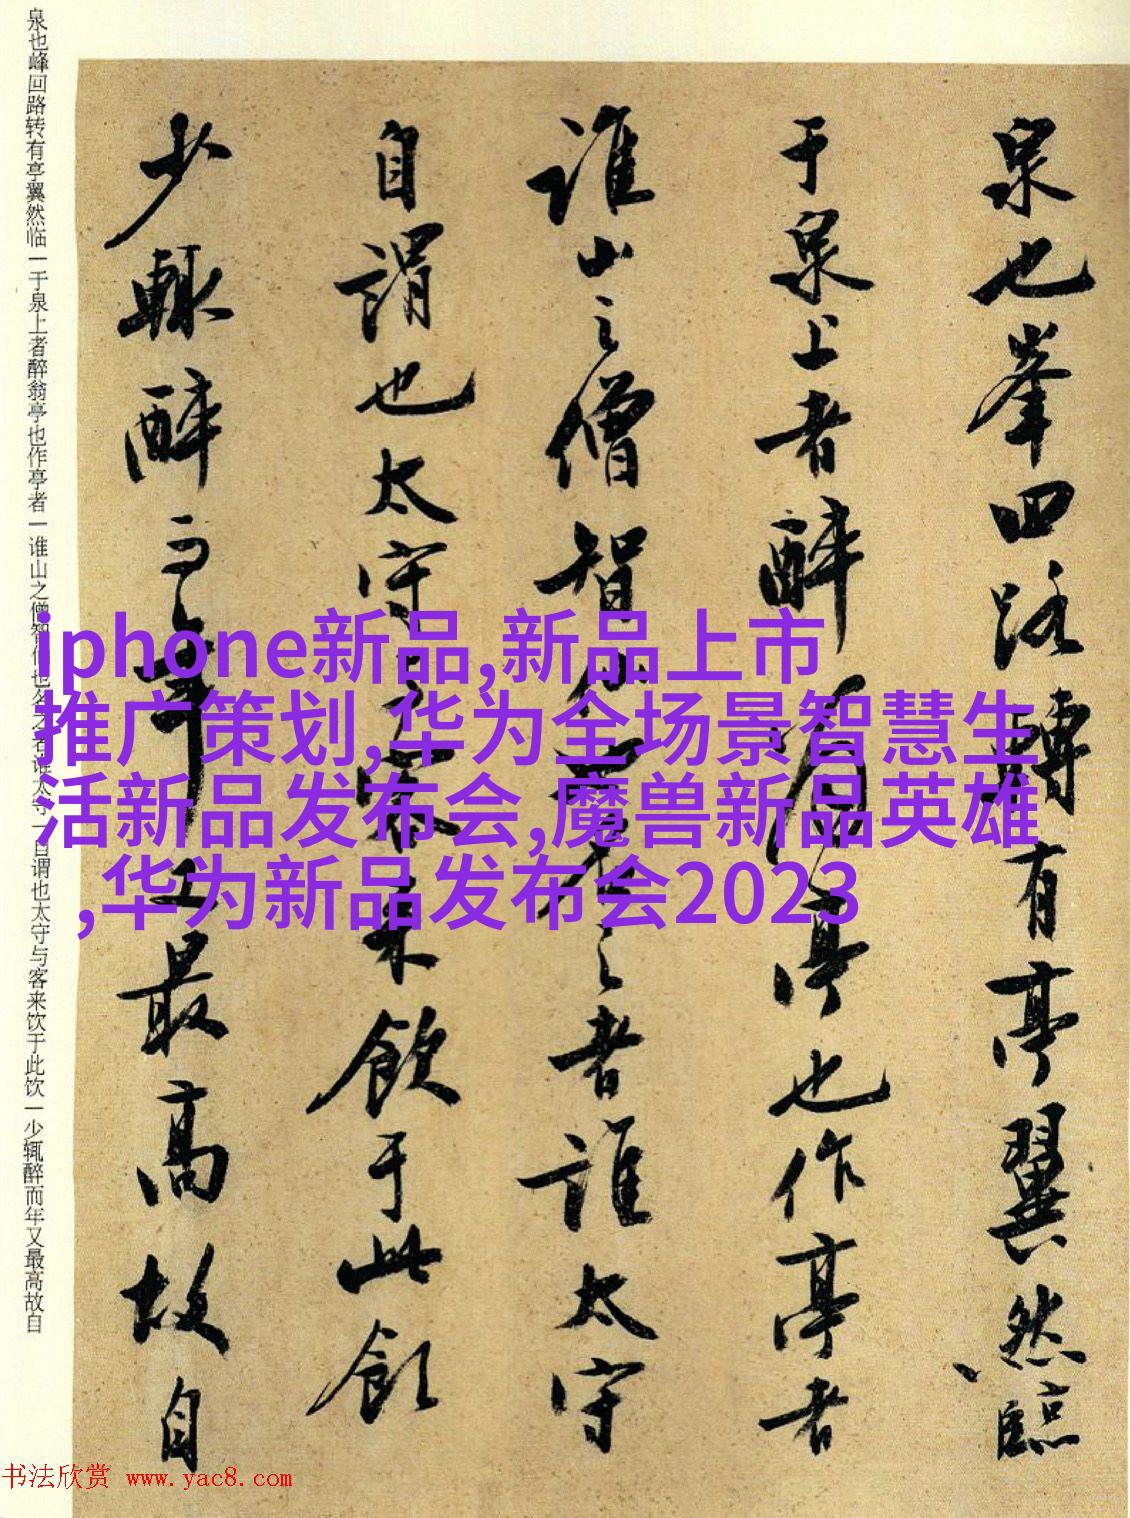 泉也峯回路轉有亭翼然臨
于泉上者醉翁亭也作亭者
誰山之僧智仙也名之者誰太守
自謂也太守与客来飲于此飲
少輒醉而年又最高故自
泉也峰回路转有亭翼然临一于泉上者醉翁亭也作亭者一谁山之僧智仙也名之者谁太守一自谓也太守与客来饮于此饮一少辄醉而年又最高故自
iphone新品,新品上市
推广策划,华为全场景智慧生
活新品发布会,魔兽新品英雄
,华为新品发布会2023
书法欣赏 www.yac8.com